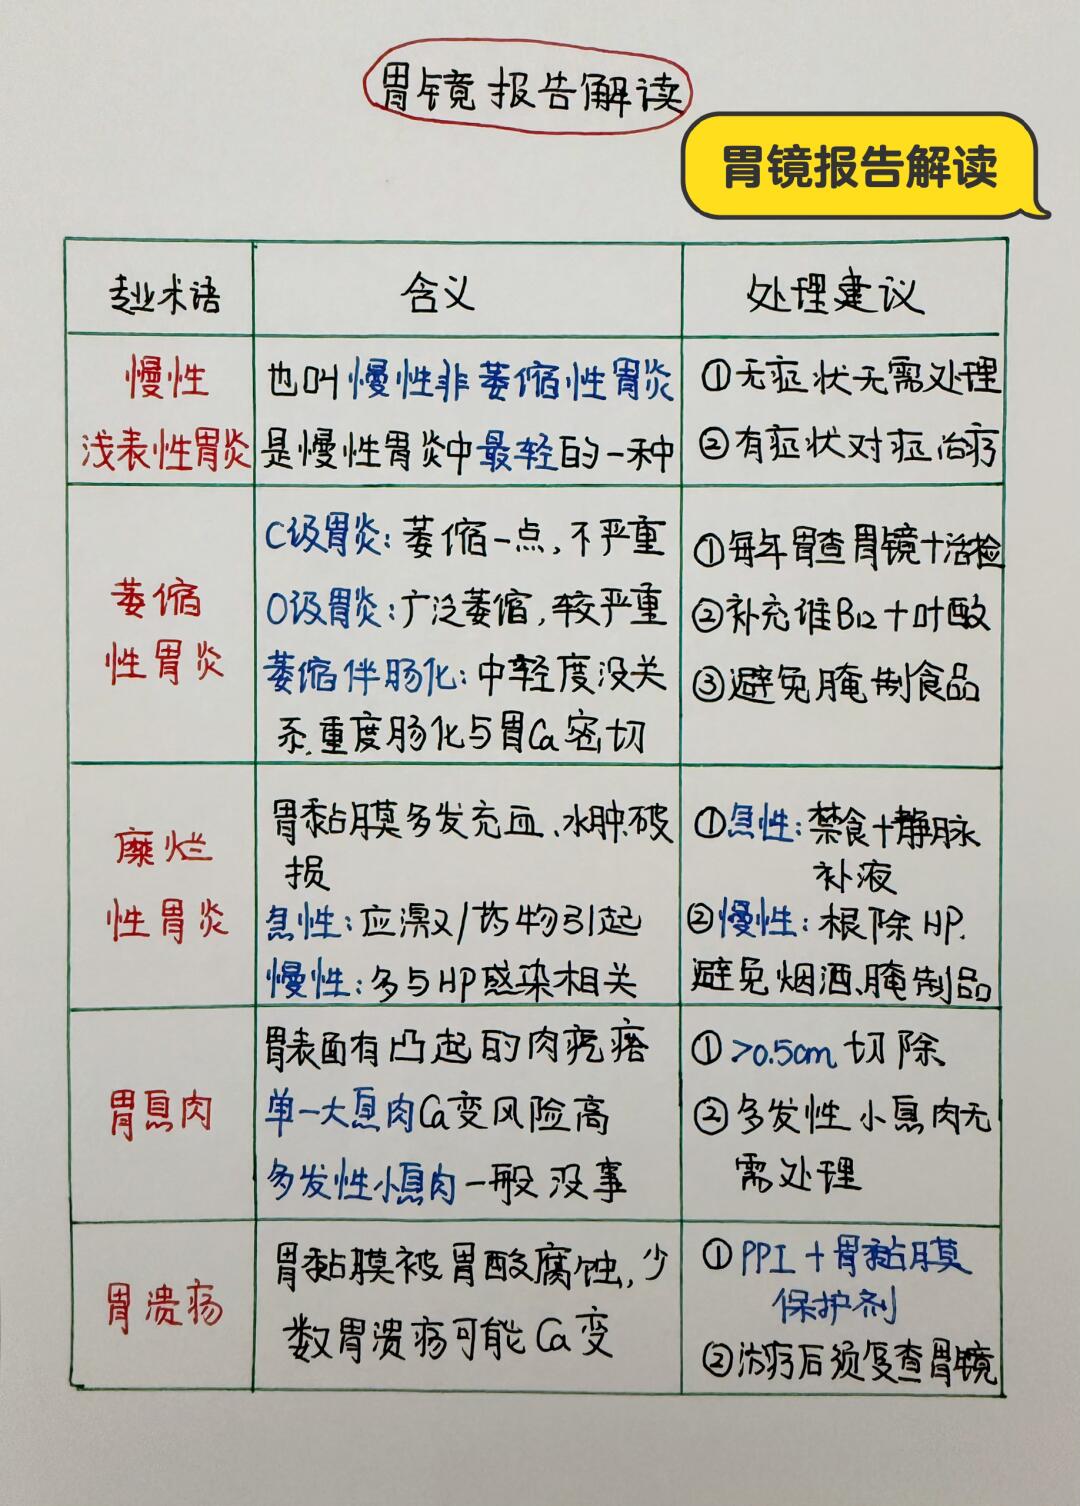 胃镜报告解读
胃镜报告解读
专业术语
含义
处理建议
慢性
浅表性胃炎
也叫慢性非萎缩性胃炎
是慢性胃炎中最轻的一种
①无症状无需处理
②有症状对症治疗
萎缩
性胃炎
C级胃炎:萎缩一点,不严重
O级胃炎:广泛萎缩,较严重
萎缩伴肠化:中轻度没关
系.重度肠化与胃Ca密切
①每年胃查胃镜+活检
②补充维B12+叶酸
③避免腌制食品
糜烂
性胃炎
胃黏膜多发充血、水肿.破
损
急性:应激/药物引起
慢性:多与HP感染相关
①急性:禁食+静脉
补液
②慢性:根除HP.
避免烟酒、腌制品
胃息肉
胃表面有凸起的肉疙瘩
单一大息肉Ca变风险高
多发性小息肉一般没事
①>0.5cm切除
②多发性小息肉无
需处理
胃溃疡
胃黏膜被胃酸腐蚀,少
数胃溃疡可能Ca变
①PPI+胃黏膜
保护剂
②治疗后须复查胃镜